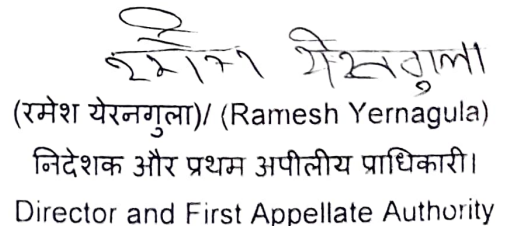 रमेश येरनगुला
(रमेश येरनगुला)/ (Ramesh Yernagula)
निदेशक और प्रथम अपीलीय प्राधिकारी।
Director and First Appellate Authority